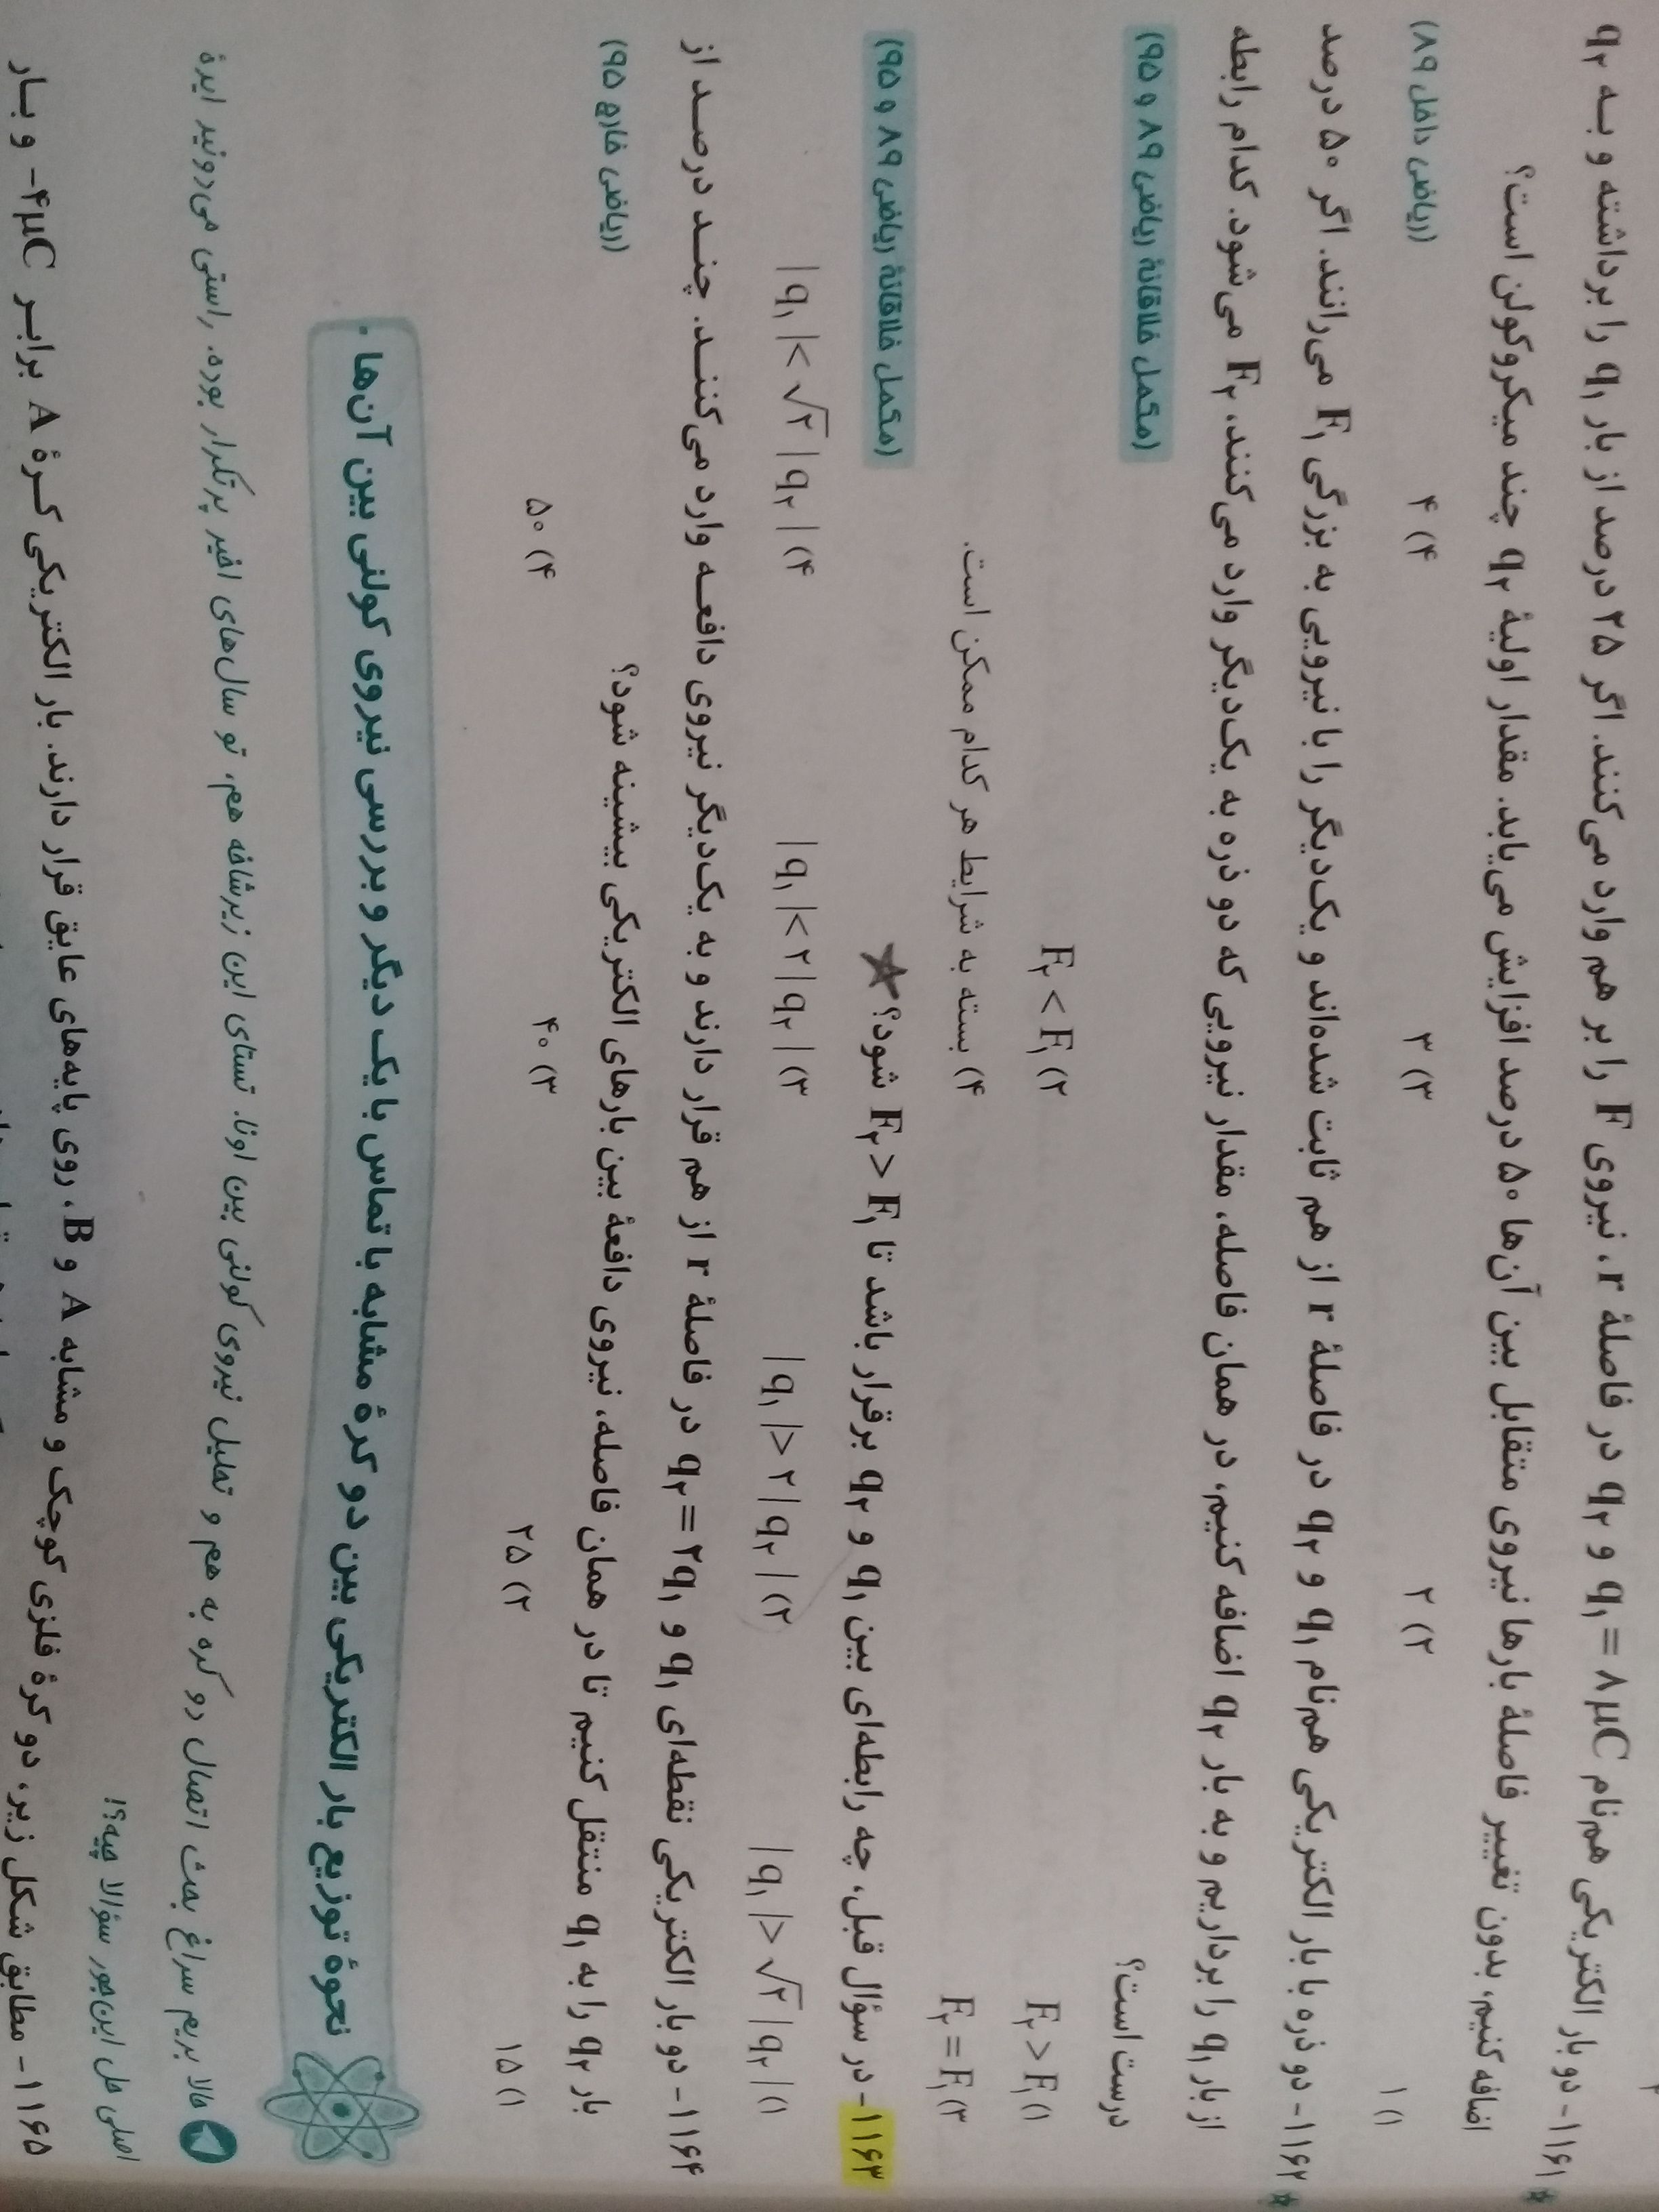 ۱۱۶۱- دو بار الکتریکی هم‌نام q₁ = ۸μC و q₂ در فاصلهٔ r، نیروی F را بر هم وارد می‌کنند. اگر ۲۵ درصد از بار q₁ را برداشته و به q₂
اضافه کنیم، بدون تغییر فاصلهٔ بارها نیروی متقابل بین آن‌ها ۵۰ درصد افزایش می‌یابد. مقدار اولیهٔ q₂ چند میکروکولن است؟
۱) ۱ ۲) ۲ ۳) ۳ ۴) ۴ (ریاضی داخل ۸۹)
۱۱۶۲- دو ذره با بار الکتریکی هم‌نام q₁ و q₂ در فاصلهٔ r از هم ثابت شده‌اند و یک‌دیگر را با نیرویی به بزرگی F₁ می‌رانند. اگر ۵۰ درصد
از بار q₁ را برداریم و به بار q₂ اضافه کنیم، در همان فاصله، مقدار نیرویی که دو ذره به یک‌دیگر وارد می‌کنند، F₂ می‌شود. کدام رابطه
درست است؟ (مکمل خلاقانهٔ ریاضی ۸۹ و ۹۵)
۱) F₂ > F₁ ۲) F₂ < F₁
۳) F₂ = F₁ ۴) بسته به شرایط هر کدام ممکن است.
۱۱۶۳- در سؤال قبل، چه رابطه‌ای بین q₁ و q₂ برقرار باشد تا F₂ > F₁ شود؟ (مکمل خلاقانهٔ ریاضی ۸۹ و ۹۵)
۱) |q₁| > √۲ |q₂| ۲) |q₁| > ۲ |q₂| ۳) |q₁| < ۲ |q₂| ۴) |q₁| < √۲ |q₂|
۱۱۶۴- دو بار الکتریکی نقطه‌ای q₁ و q₂ = ۲q₁ در فاصلهٔ r از هم قرار دارند و به یک‌دیگر نیروی دافعه وارد می‌کنند. چند درصد از
بار q₂ را به q₁ منتقل کنیم تا در همان فاصله، نیروی دافعهٔ بین بارهای الکتریکی بیشینه شود؟ (ریاضی خارج ۹۵)
۱) ۱۵ ۲) ۲۵ ۳) ۴۰ ۴) ۵۰
نحوهٔ توزیع بار الکتریکی بین دو کرهٔ مشابه با تماس با یک دیگر و بررسی نیروی کولنی بین آن‌ها
حالا بریم سراغ بحث اتصال دو کره به هم و تحلیل نیروی کولنی بین اونا. تستای این زیرشاخه هم، تو سال‌های اخیر پرتکرار بوده. راستی می‌دونید ایدهٔ
اصلی حل این‌جور سؤالا چیه؟!
۱۱۶۵- مطابق شکل زیر، دو کرهٔ فلزی کوچک و مشابه A و B، روی پایه‌های عایق قرار دارند. بار الکتریکی کرهٔ A برابر ۴μC- و بار